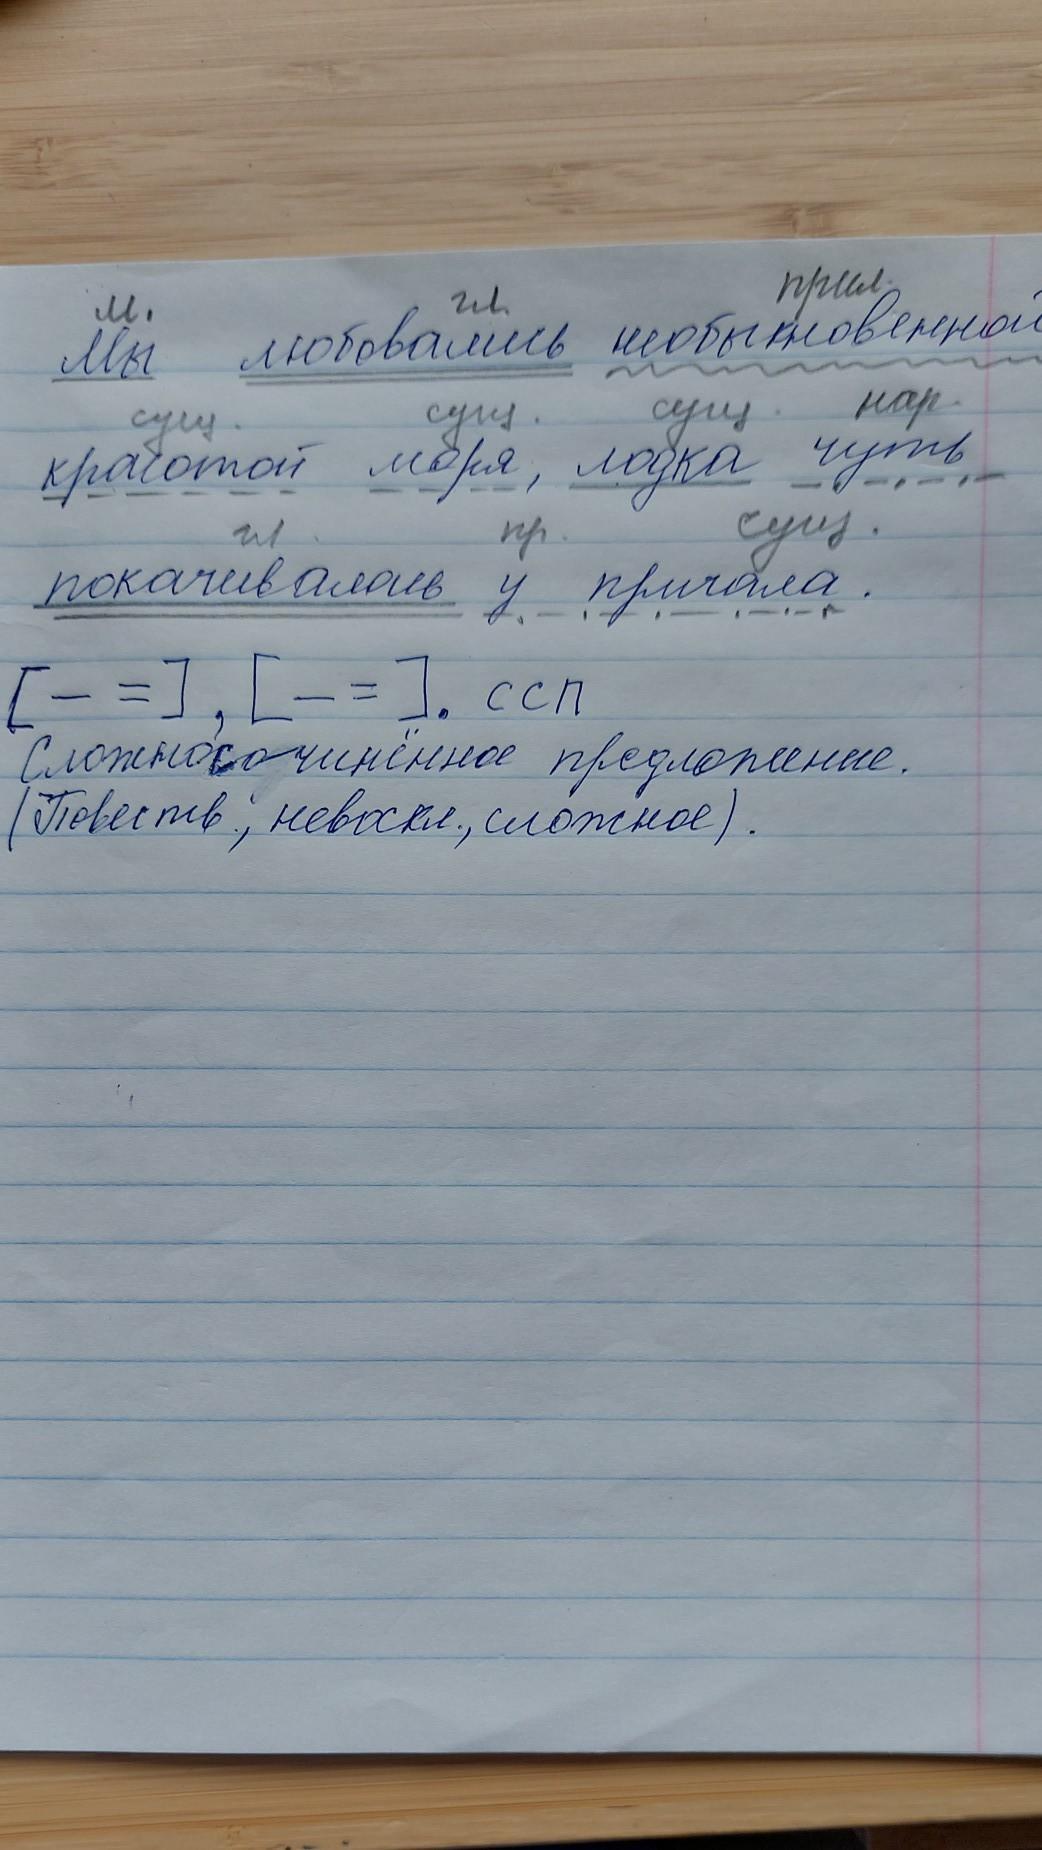 м. гл. прил.
Мы любовались необыкновенной
сущ. сущ. сущ. нар.
красотой моря, лодка чуть
гл. пр. сущ.
покачивалась у причала.
[— =], [— =]. ССП
Сложносочинённое предложение.
(Повеств., невоскл., сложное).